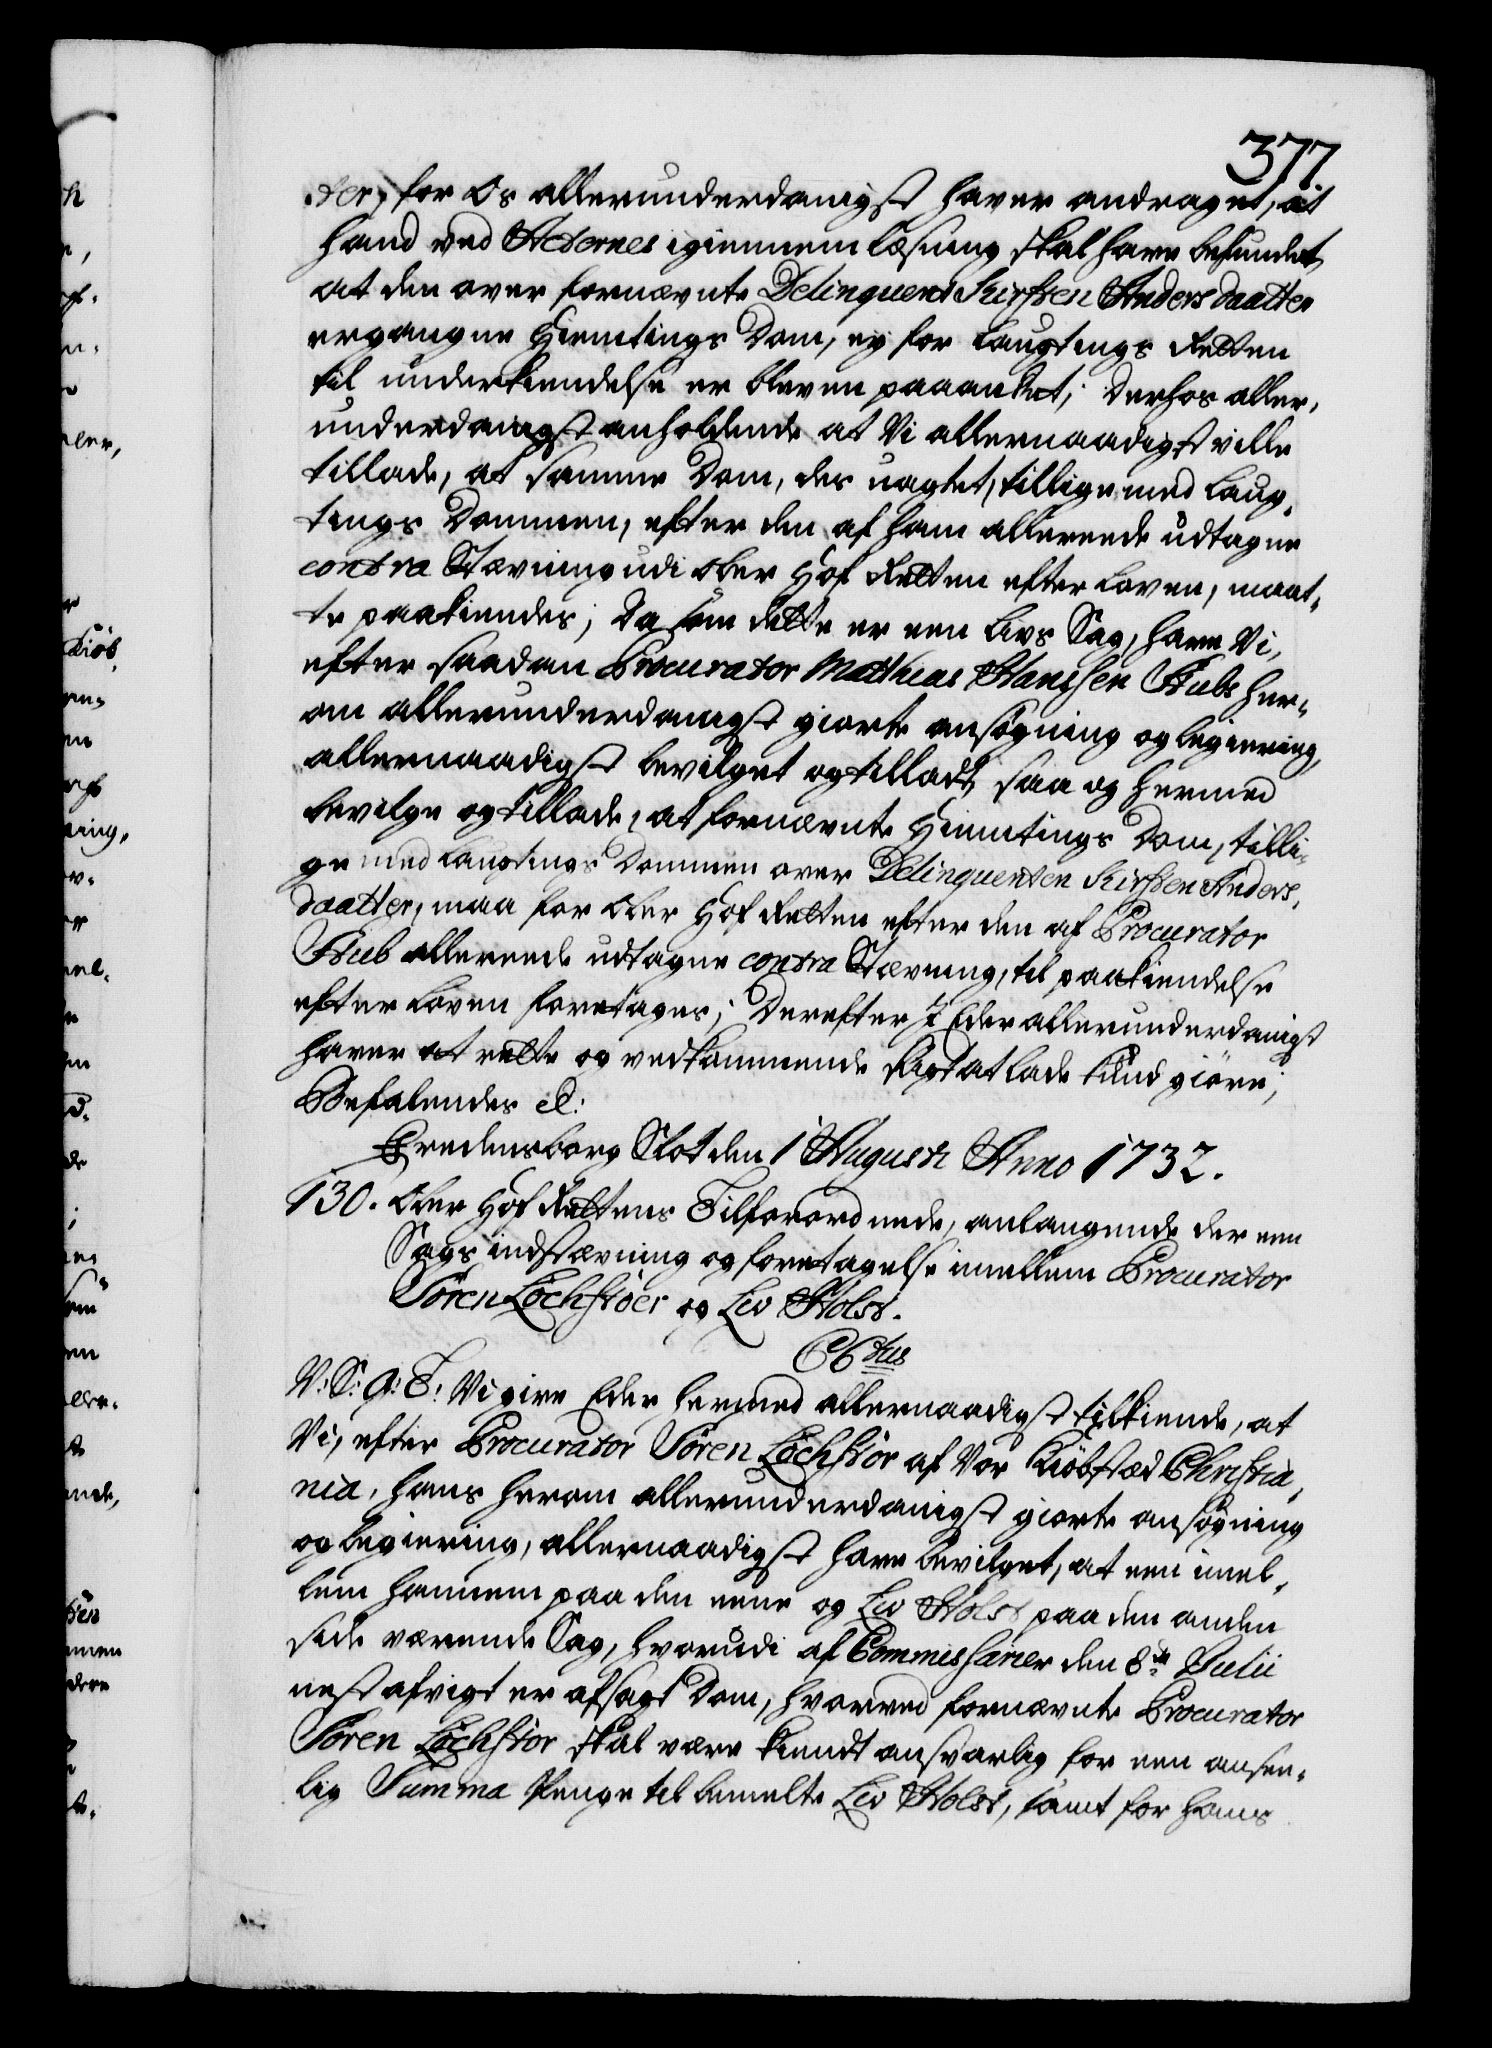 377.
ter, for Os allerunderdanigst haver andraget, at
hand ved Acternes igiennemlæsning skal have befundet,
at den over fornævnte Delinquent Kirsten Anders daatter
ergangne Hiemtings Dom, ej for Laugtings Retten
til underkiendelse er bleven paaanket; derhos aller,
underdanigst anholdende at Vi allernaadigst ville
tillade, at samme Dom, des uagtet, tillige med Laug,
tings Dommen, efter den af ham allereede udtagne
contra Stævning udi Ober Hof Retten efter Loven, maat,
te paakiendes; Da som dette er een Livs Sag, have Vi,
efter saadan Procurator Matthias Hanssen Hubs her,
om allerunderdanigst giorte ansøgning og begiering,
allernaadigst bevilget og tilladt, saa og hermed
bevilge og tillade, at fornævnte Hiemtings Dom, tilli,
ge med Laugtings Dommen over Delinquenten Kirsten Anders,
daatter, maa for Ober Hof Retten efter den af Procurator
Hub allereede udtagne contra Stævning, til paakiendelse
efter Loven foretages; Derefter I Eder allerunderdanigst
haver at rette og vedkommende sligt at lade kund giøre;
Befalendes etc:
Fredensborg Slot den 1 Augusti Anno 1732.
130. Ober Hof Rettens Tilforordnede, anlangende der een
Sags indstævning og foretagelse imellem Procurator
Sören Lochstoer og Liv Holst.
C6tus
V: S: G: T: Vi give Eder hermed allernaadigst tilkiende, at
Vi, efter Procurator Sören Lochstör af Vor Kiøbstæd Christia,
nia, hans herom allerunderdanigst giorte ansøgning
og begiering, allernaadigst have bevilget, at een imel,
lem hannem paa den eene og Liv Holst paa den anden
side værende Sag, hvorudi af Commissarier den 8de Julii
nest afvigt er afsagt Dom, hvorved fornævnte Procurator
Sören Lochstör skal være kiendt ansvarlig for een ansee,
lig Summa Penge til bemelte Liv Holst, samt for hans